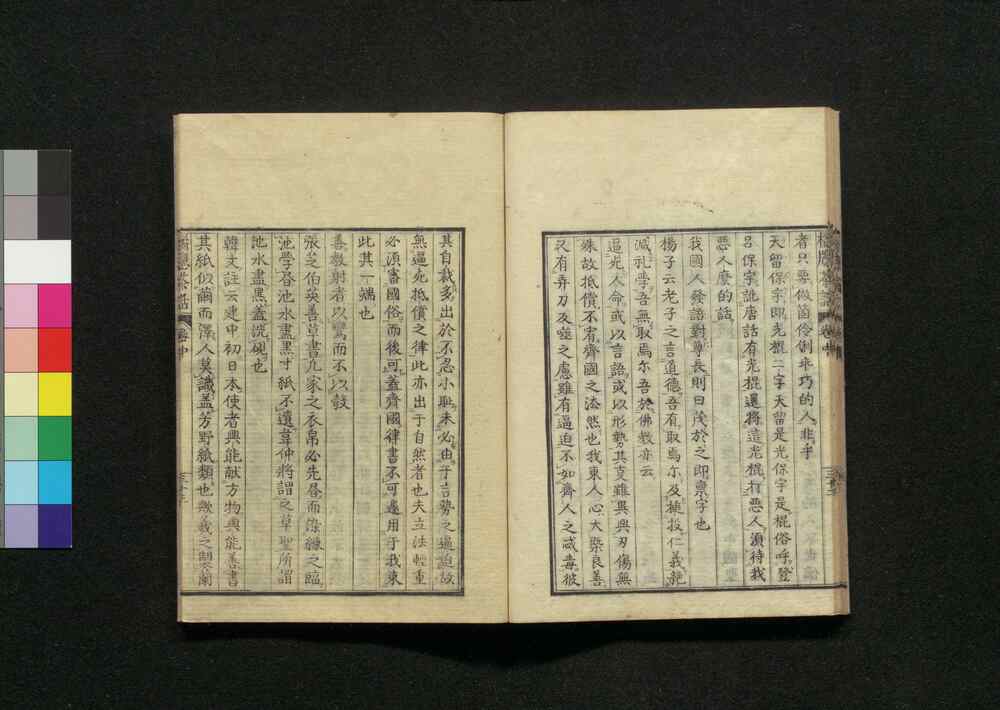 橘牕茶話 卷中
者只要做箇伶俐乖巧的人非乎
天留保字即光棍二字天留是光保字是棍俗呼登
呂保字訛唐話有光棍還將造光棍打惡人須待我
惡人麼的話
我國人發語對尊長則曰茂於之即稟字也
楊子云老子之言道德吾有取焉尔及搥投仁義絶
減礼學吾無取焉尔吾於佛教亦云
逼死人命或以言語或以形勢其支雖異與刃傷無
殊故抵償不宥齊國之法然也我東人心大槩良善
又有弄刀及噬之慮雖有逼迫不如齊人之咸毒彼
三十二
其自裁多出於不忍小耻未必由于言勢之逼迫故
無逼死抵償之律此亦出于自然者也夫立法輕重
必須審國俗而後可蓋齊國律書不可遽用于我東
此其一端也
善教射者以彎而不以彀
張芝伯英善草書凢家之衣帛必先書而後練之臨
池學書池水盡黒寸紙不遺韋仲將謂之草聖所謂
池水盡黒蓋洗硯也
韓文註云建中初日本使者興能献方物興能善書
其紙似繭而澤人莫識蓋芳野紙類也羲之蘭
橘牕茶話 卷中
三十三